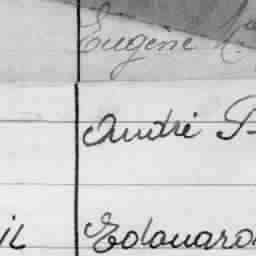 Eugène
André P
il Edouard